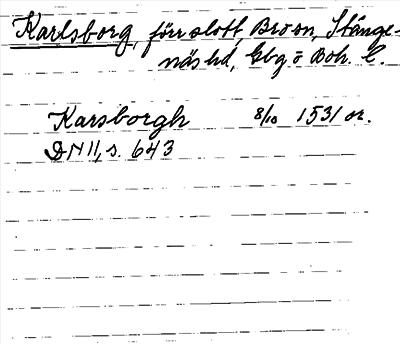 Karlsborg, förr slott, Bro sn, Stånge-
näs hd, Gbg o Boh. l.
Karsborgh 8/10 1531 or.
DN 11, s. 643